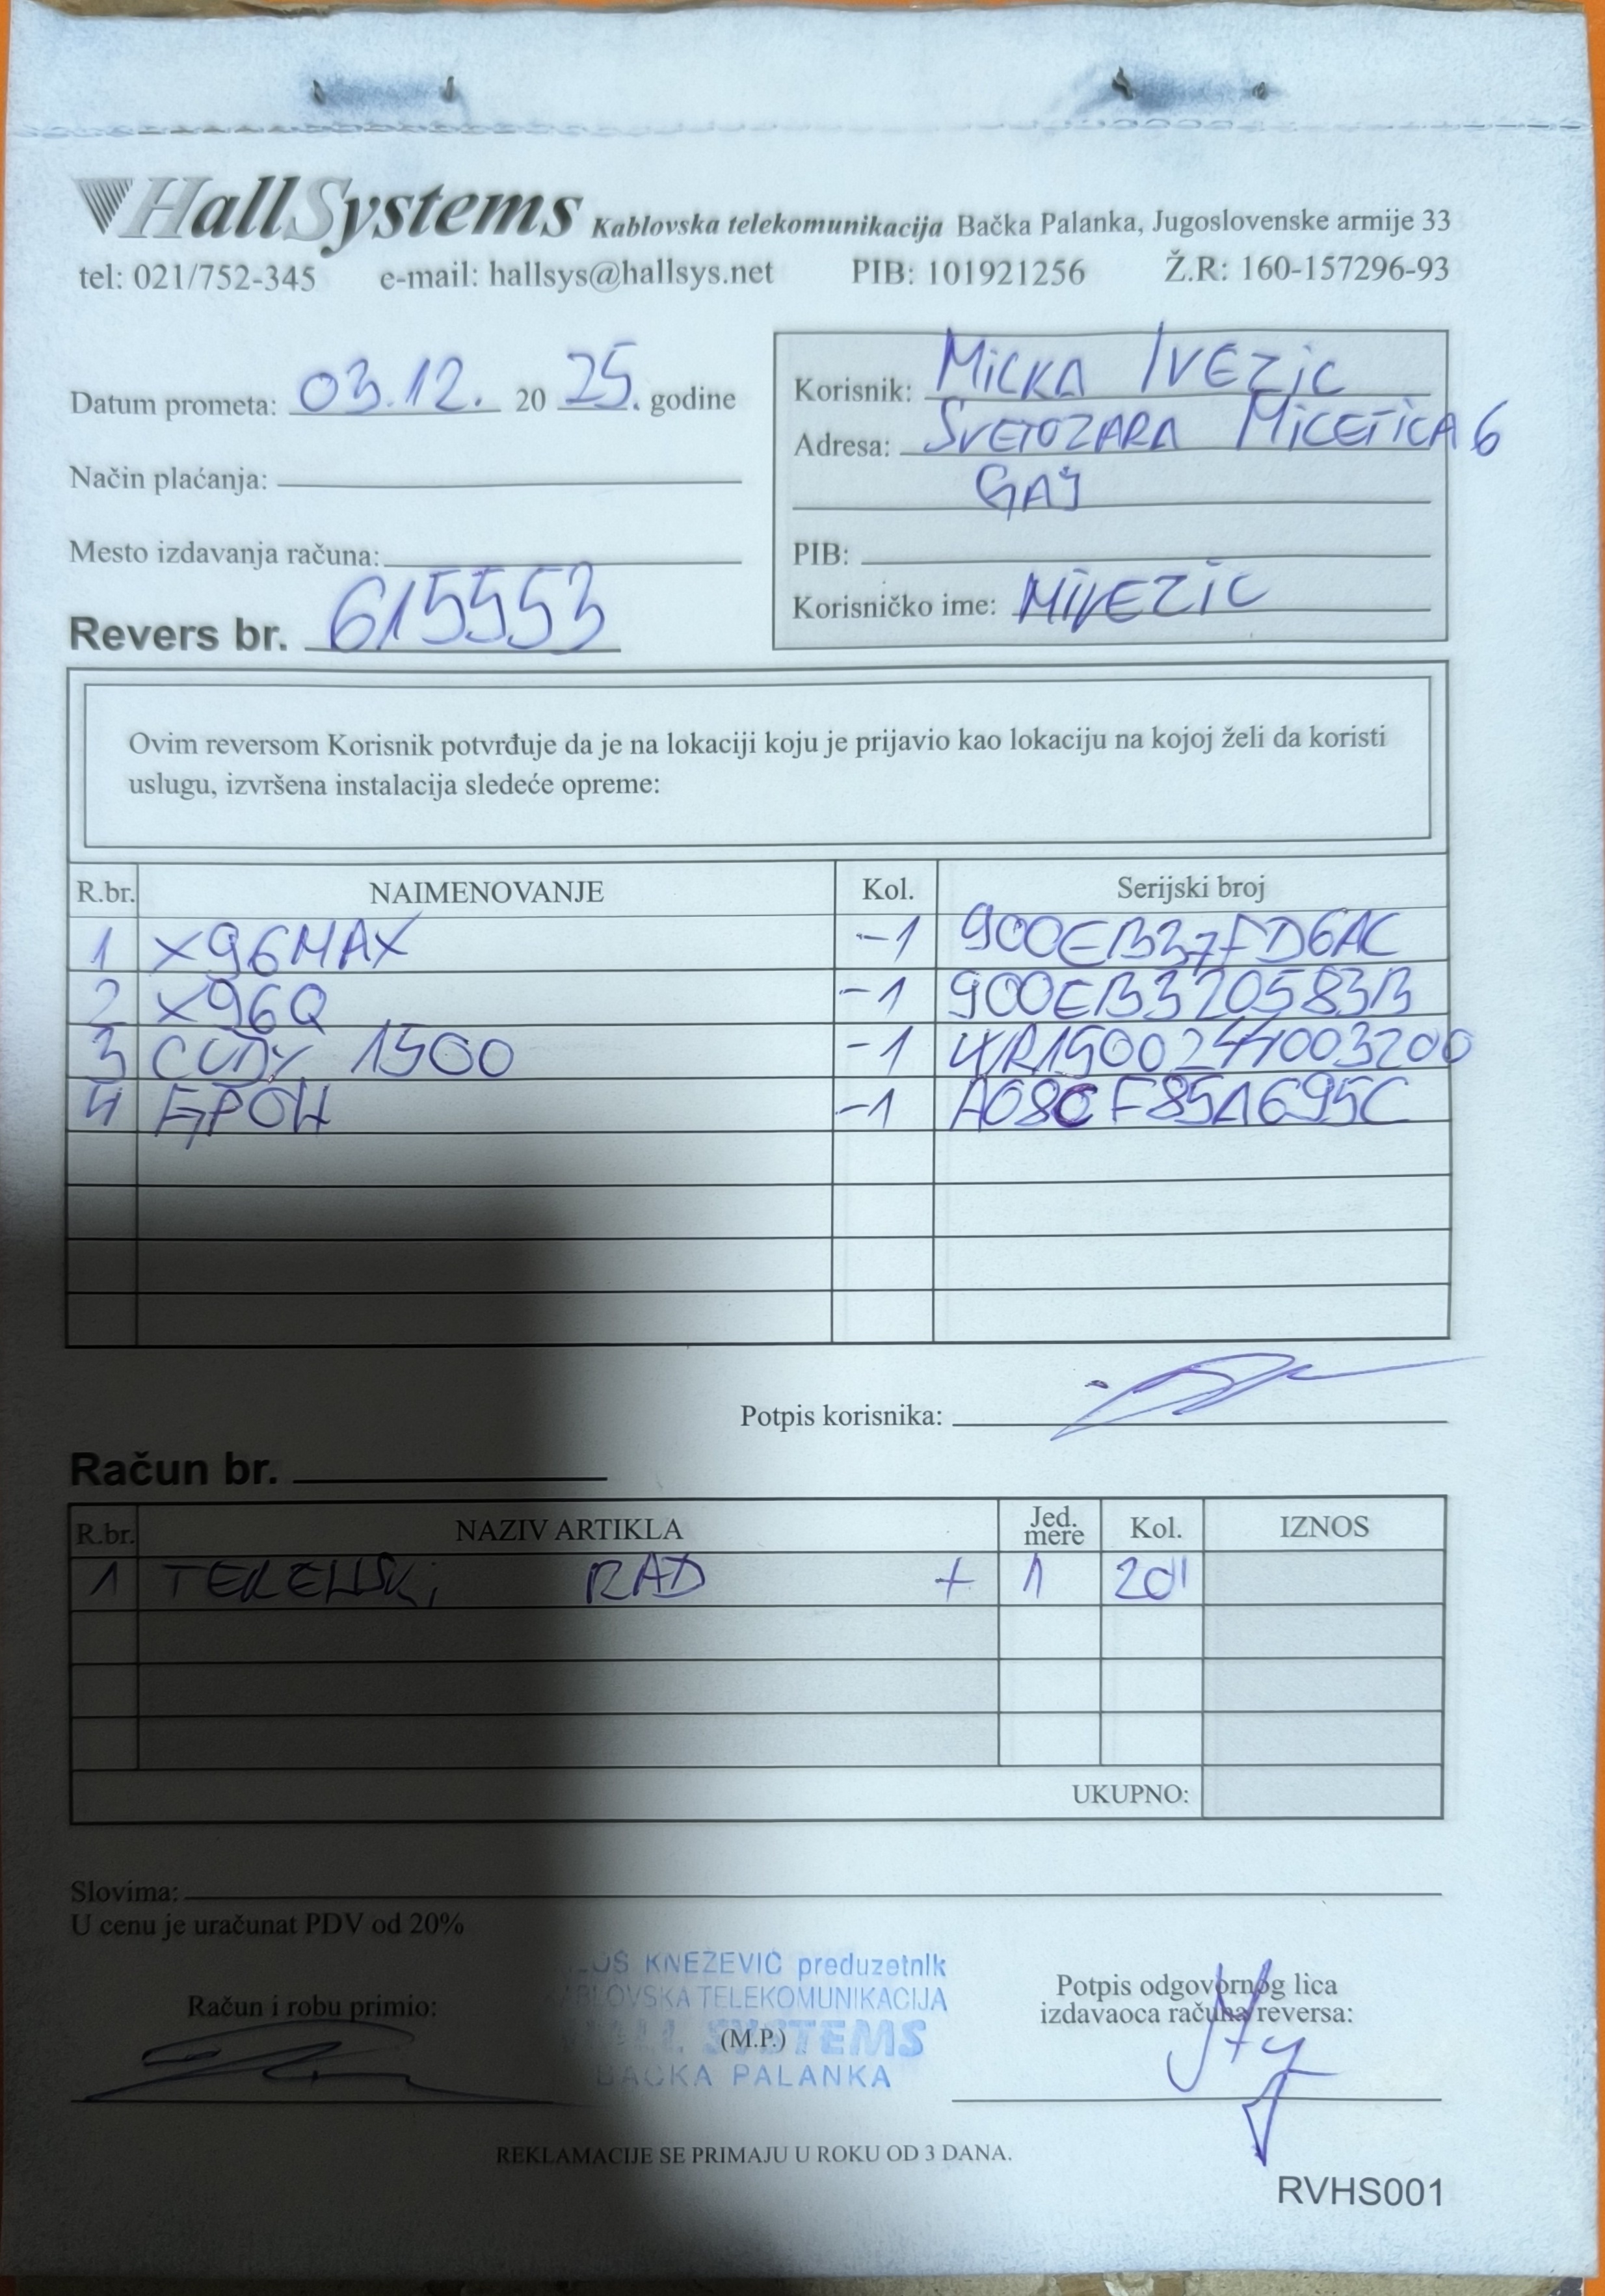 HallSystems Kablovska telekomunikacija Bačka Palanka, Jugoslovenske armije 33
tel: 021/752-345 e-mail: hallsys@hallsys.net PIB: 101921256 Ž.R: 160-157296-93
Datum prometa: 03.12. 20 25. godine
Način plaćanja:
Mesto izdavanja računa:
Revers br. 615553
Korisnik: MiCKA IVEZiC
Adresa: SVETOZARA MiCETiCA 6
GAJ
PIB:
Korisničko ime: MIVEZIC
Ovim reversom Korisnik potvrđuje da je na lokaciji koju je prijavio kao lokaciju na kojoj želi da koristi
uslugu, izvršena instalacija sledeće opreme:
R.br. NAIMENOVANJE Kol. Serijski broj
1 X96MAX -1 900EB37FD6AC
2 X96Q -1 900EB320583B
3 CUDY 1500 -1 WR1500244003200
4 GPON -1 A08CF851695C
Potpis korisnika:
Račun br.
R.br. NAZIV ARTIKLA Jed. mere Kol. IZNOS
1 TERENSKi RAD + 1 2d1
UKUPNO:
Slovima:
U cenu je uračunat PDV od 20%
KNEŽEVIĆ preduzetnik
KABLOVSKA TELEKOMUNIKACIJA
HALL SYSTEMS
BAČKA PALANKA
Račun i robu primio:
(M.P.)
Potpis odgovornog lica
izdavaoca računa/reversa:
REKLAMACIJE SE PRIMAJU U ROKU OD 3 DANA.
RVHS001